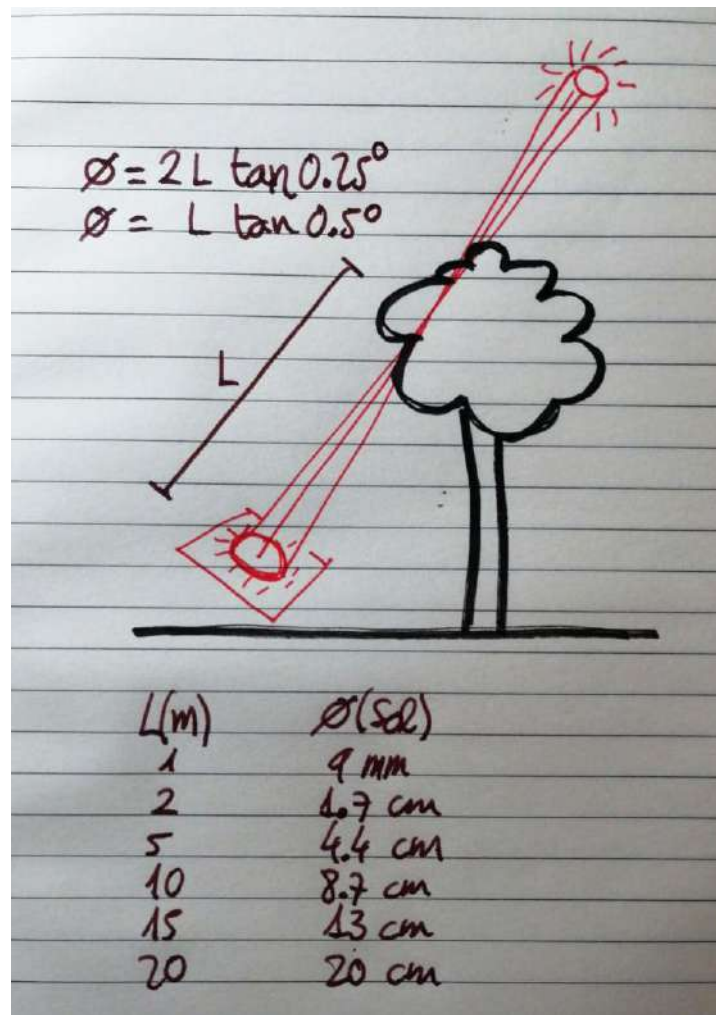 Ø = 2 L tan 0.25°
Ø = L tan 0.5°
L
L(m) Ø(Sol)
1 9 mm
2 1.7 cm
5 4.4 cm
10 8.7 cm
15 13 cm
20 20 cm